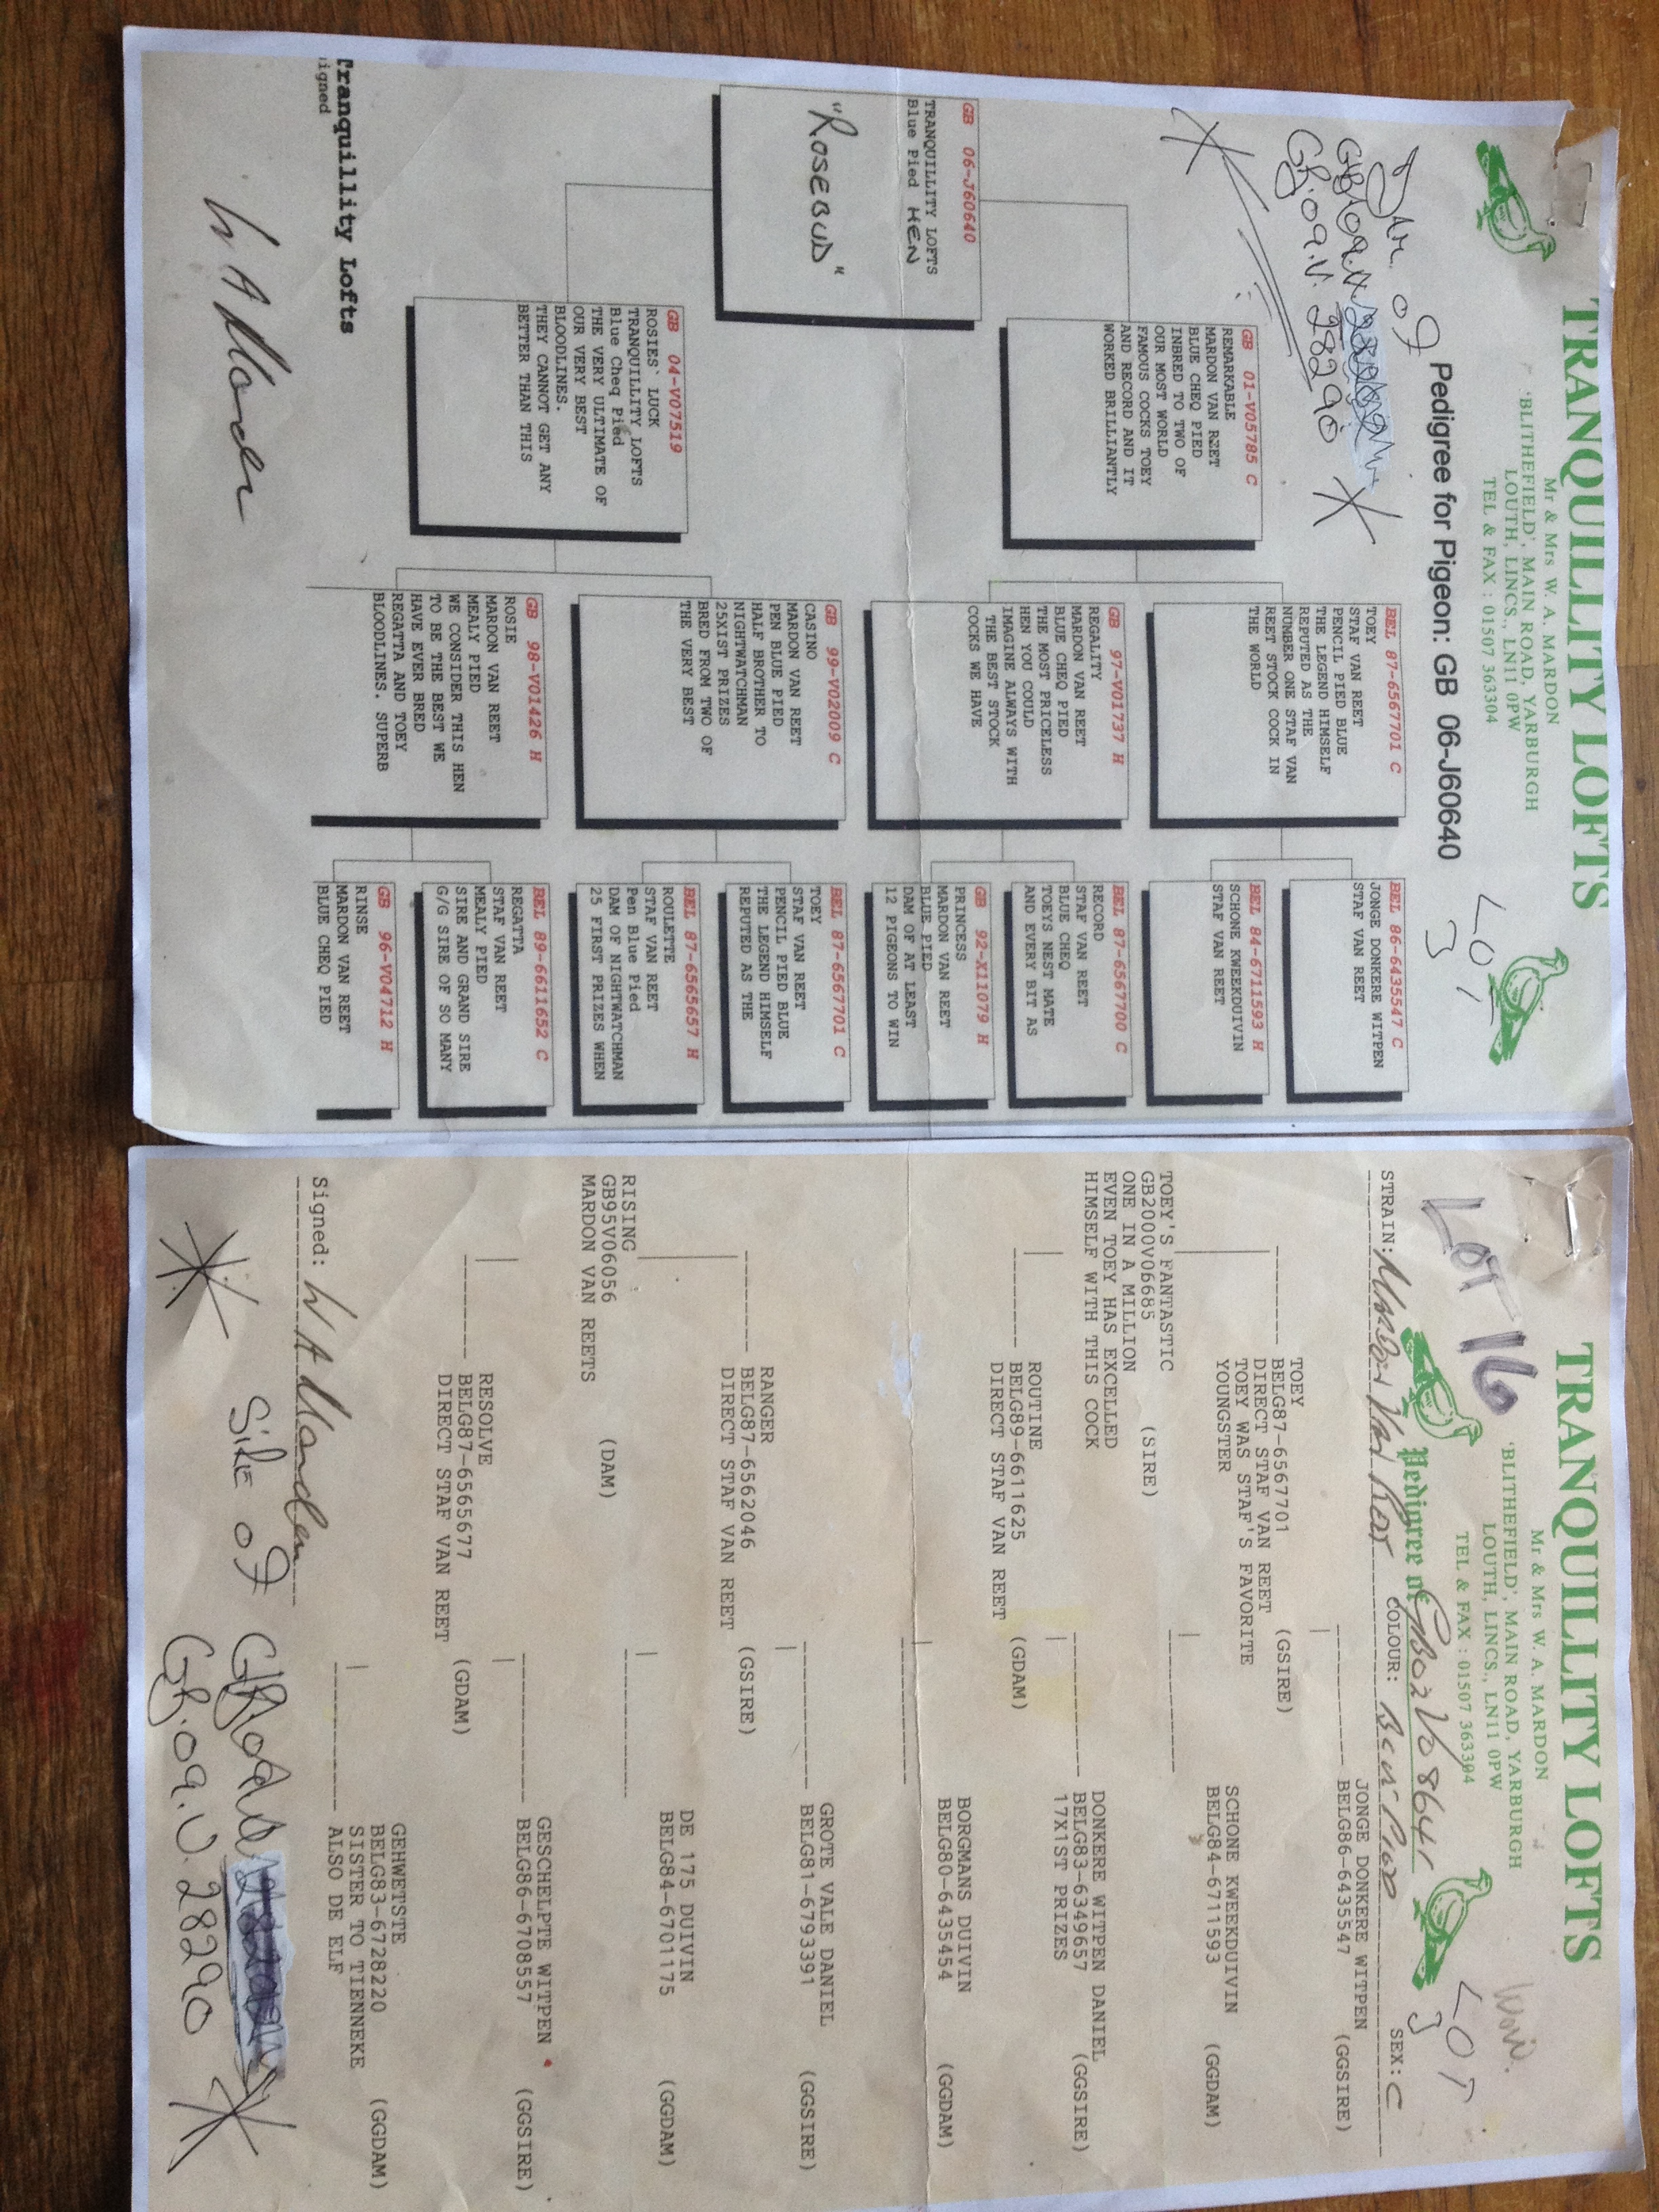 TRANQUILLITY LOFTS
Mr & Mrs W. A. MARDON
'BLITHEFIELD', MAIN ROAD, YARBURGH
LOUTH, LINCS., LN11 0PW
TEL & FAX : 01507 363304
Pedigree for Pigeon: GB 06-J60640
LOT
3
DAM. OF
GB.09.V. 28290
GB 06-J60640
TRANQUILLITY LOFTS
Blue Pied HEN
"ROSEBUD"
GB 01-V05785 C
REMARKABLE
MARDON VAN REET
BLUE CHEQ PIED
INBRED TO TWO OF
OUR MOST WORLD
FAMOUS COCKS TOEY
AND RECORD AND IT
WORKED BRILLIANTLY
GB 04-V07519
ROSIES` LUCK
TRANQUILLITY LOFTS
Blue Cheq Pied
THE VERY ULTIMATE OF
OUR VERY BEST
BLOODLINES.
THEY CANNOT GET ANY
BETTER THAN THIS
BEL 87-6567701 C
TOEY
STAF VAN REET
PENCIL PIED BLUE
THE LEGEND HIMSELF
REPUTED AS THE
NUMBER ONE STAF VAN
REET STOCK COCK IN
THE WORLD
GB 97-V01737 H
REGALITY
MARDON VAN REET
BLUE CHEQ PIED
THE MOST PRICELESS
HEN YOU COULD
IMAGINE ALWAYS WITH
THE BEST STOCK
COCKS WE HAVE
GB 99-V02009 C
CASINO
MARDON VAN REET
PEN BLUE PIED
HALF BROTHER TO
NIGHTWATCHMAN
25X1ST PRIZES
BRED FROM TWO OF
THE VERY BEST
GB 98-V01426 H
ROSIE
MARDON VAN REET
MEALY PIED
WE CONSIDER THIS HEN
TO BE THE BEST WE
HAVE EVER BRED
REGATTA AND TOEY
BLOODLINES. SUPERB
BEL 86-6435547 C
JONGE DONKERE WITPEN
STAF VAN REET
BEL 84-6711593 H
SCHONE KWEEKDUIVIN
STAF VAN REET
BEL 87-6567700 C
RECORD
STAF VAN REET
BLUE CHEQ
TOEYS NEST MATE
AND EVERY BIT AS
GB 92-X11079 H
PRINCESS
MARDON VAN REET
BLUE PIED
DAM OF AT LEAST
12 PIGEONS TO WIN
BEL 87-6567701 C
TOEY
STAF VAN REET
PENCIL PIED BLUE
THE LEGEND HIMSELF
REPUTED AS THE
BEL 87-6565657 H
ROULETTE
STAF VAN REET
Pen Blue Pied
DAM OF NIGHTWATCHMAN
25 FIRST PRIZES WHEN
BEL 89-6611652 C
REGATTA
STAF VAN REET
MEALY PIED
SIRE AND GRAND SIRE
G/G SIRE OF SO MANY
GB 96-V04712 H
RINSE
MARDON VAN REET
BLUE CHEQ PIED
Tranquillity Lofts
igned
W A Mardon
TRANQUILLITY LOFTS
Mr & Mrs W. A. MARDON
'BLITHEFIELD', MAIN ROAD, YARBURGH
LOUTH, LINCS., LN11 0PW
TEL & FAX : 01507 363304
LOT 16
LOT
3
Pedigree of GB02V08641
STRAIN: Mardon Van Reet COLOUR: Blue Pied SEX: C
JONGE DONKERE WITPEN
BELG86-6435547 (GGSIRE)
TOEY
BELG87-6567701 (GSIRE)
DIRECT STAF VAN REET
TOEY WAS STAF'S FAVORITE
YOUNGSTER
SCHONE KWEEKDUIVIN
BELG84-6711593 (GGDAM)
TOEY'S FANTASTIC
GB2000V06685 (SIRE)
ONE IN A MILLION
EVEN TOEY HAS EXCELLED
HIMSELF WITH THIS COCK
DONKERE WITPEN DANIEL
BELG83-6349657 (GGSIRE)
17X1ST PRIZES
ROUTINE
BELG89-6611625 (GDAM)
DIRECT STAF VAN REET
BORGMANS DUIVIN
BELG80-6435454 (GGDAM)
GROTE VALE DANIEL
BELG81-6793391 (GGSIRE)
RANGER
BELG87-6562046 (GSIRE)
DIRECT STAF VAN REET
DE 175 DUIVIN
BELG84-6701175 (GGDAM)
RISING
GB95V06056 (DAM)
MARDON VAN REETS
GESCHELPTE WITPEN
BELG86-6708557 (GGSIRE)
RESOLVE
BELG87-6565677 (GDAM)
DIRECT STAF VAN REET
GEHWETSTE
BELG83-6728220 (GGDAM)
SISTER TO TIENNEKE
ALSO DE ELF
Signed: W A Mardon
SIRE OF
GB.09.V.28290